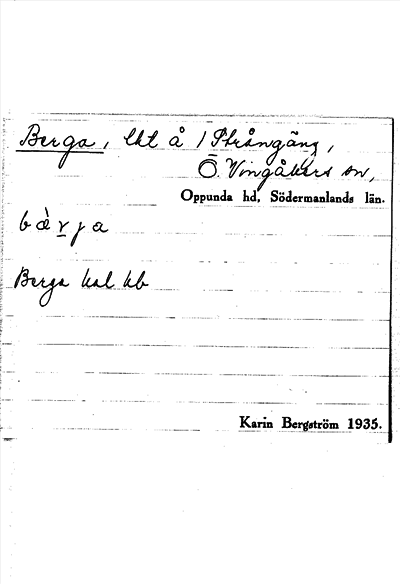 Berga, lht å 1 Strångäng,
Ö. Vingåkers sn,
Oppunda hd, Södermanlands län.
bàrja
Berga hal kb
Karin Bergström 1935.